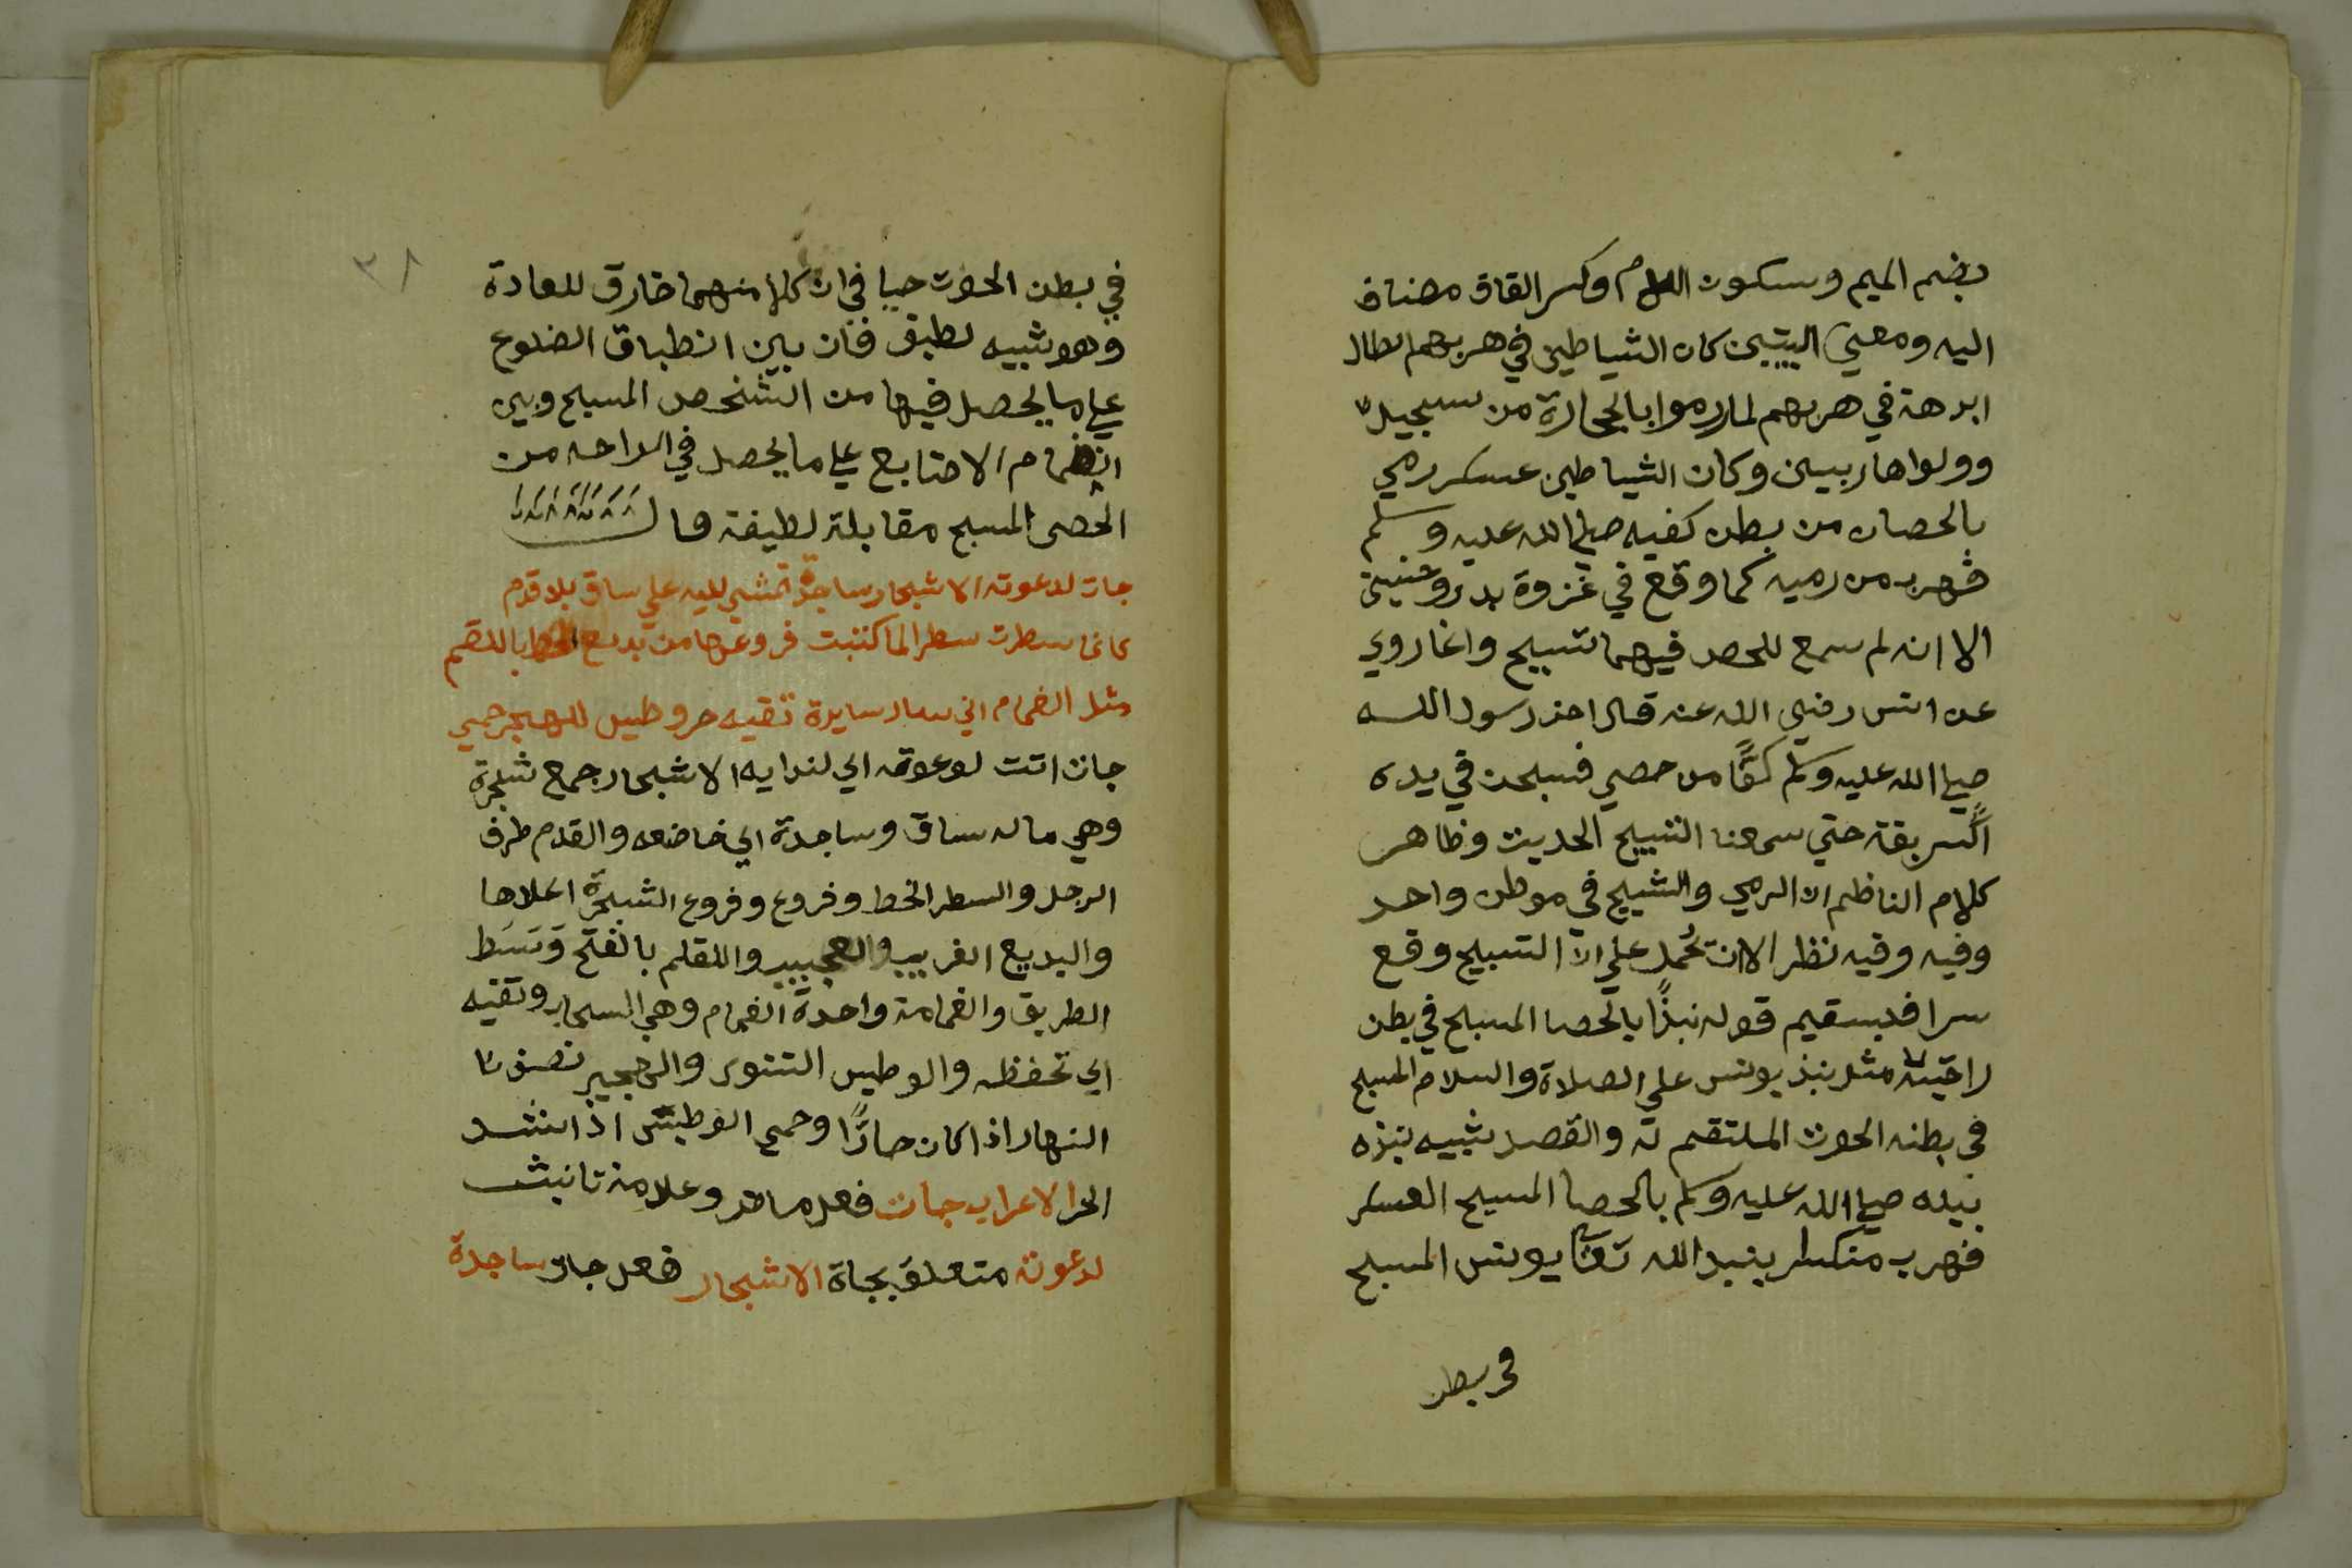 بضم الميم وسكون اللام وكسر القاف مضاف
اليه ومعني البيتين كان الشياطين في هربهم ابطال
ابرهة في هربهم لما رموا بالحجارة من سجيل
وولوا هاربين وكان الشياطين عسكر رمي
بالحصان من بطن كفيه صلي الله عليه وسلم
فهرب من رميه كما وقع في غزوة بدر وحنين
الا انه لم يسمع للحصد فيهما تسبيح وانما روي
عن انس رضي الله عنه قال اخذ رسول الله
صلي الله عليه وسلم كفًّا من حصي فسبحن في يده
حتي سمعنا التسبيح الحديث وظاهر
كلام الناظم ان الرمي والتسبيح في موطن واحد
وفيه وفيه نظر الا ان تحمل علي ان التسبيح وقع
سرا فيستقيم قوله نبذًا بالحصا المسبح في بطن
راحتيه مثل نبذ يونس علي الصلاة والسلام المسبح
في بطنه الحوت الملتقم له والقصد تشبيه نبذه
نبيله صلي الله عليه وسلم بالحصا المسبح العسكر
فهرب منكسرا بنبذ الله تعا يونس المسبح
في بطن
٣٨
في بطن الحوت حيا في ان كلا منهما خارق للعادة
وهو شبيه لطيف فان بين انطباق الضلوع
علي ما يحصل فيها من الشخص المسبح وبين
انضمام الاصابع علي ما يحصل في الراحه من
الحصي المسبح مقابلة لطيفة قال
جات لدعوته الاشجار ساجدة تمشي اليه علي ساق بلا قدم
كانما سطرت سطرا لما كتبت فروعها من بديع الخط باللقم
مثل الغمام اني سار سايرة تقيه حر وطيس للهجير حمي
جات اتت لدعوته اي لندايه الاشجار جمع شجرة
وهي ماله ساق وساجدة اي خاضعه والقدم طرف
الرجل والسطر الخط وفروع وفروع الشجرة اعلاها
والبديع الغريب والعجيب واللقلم بالفتح وَسَط
الطريق والغمامة واحدة الغمام وهي السحاب وتقيه
اي تحفظه والوطيس التنور والهجير نصف
النهار اذا كان حارًّا وحمي الوطيس اذا اشتد
الحر الاعراب جات فعل ماض وعلامة تانيث
لدعوته متعلق بجاة الاشجار فعل جات ساجدة